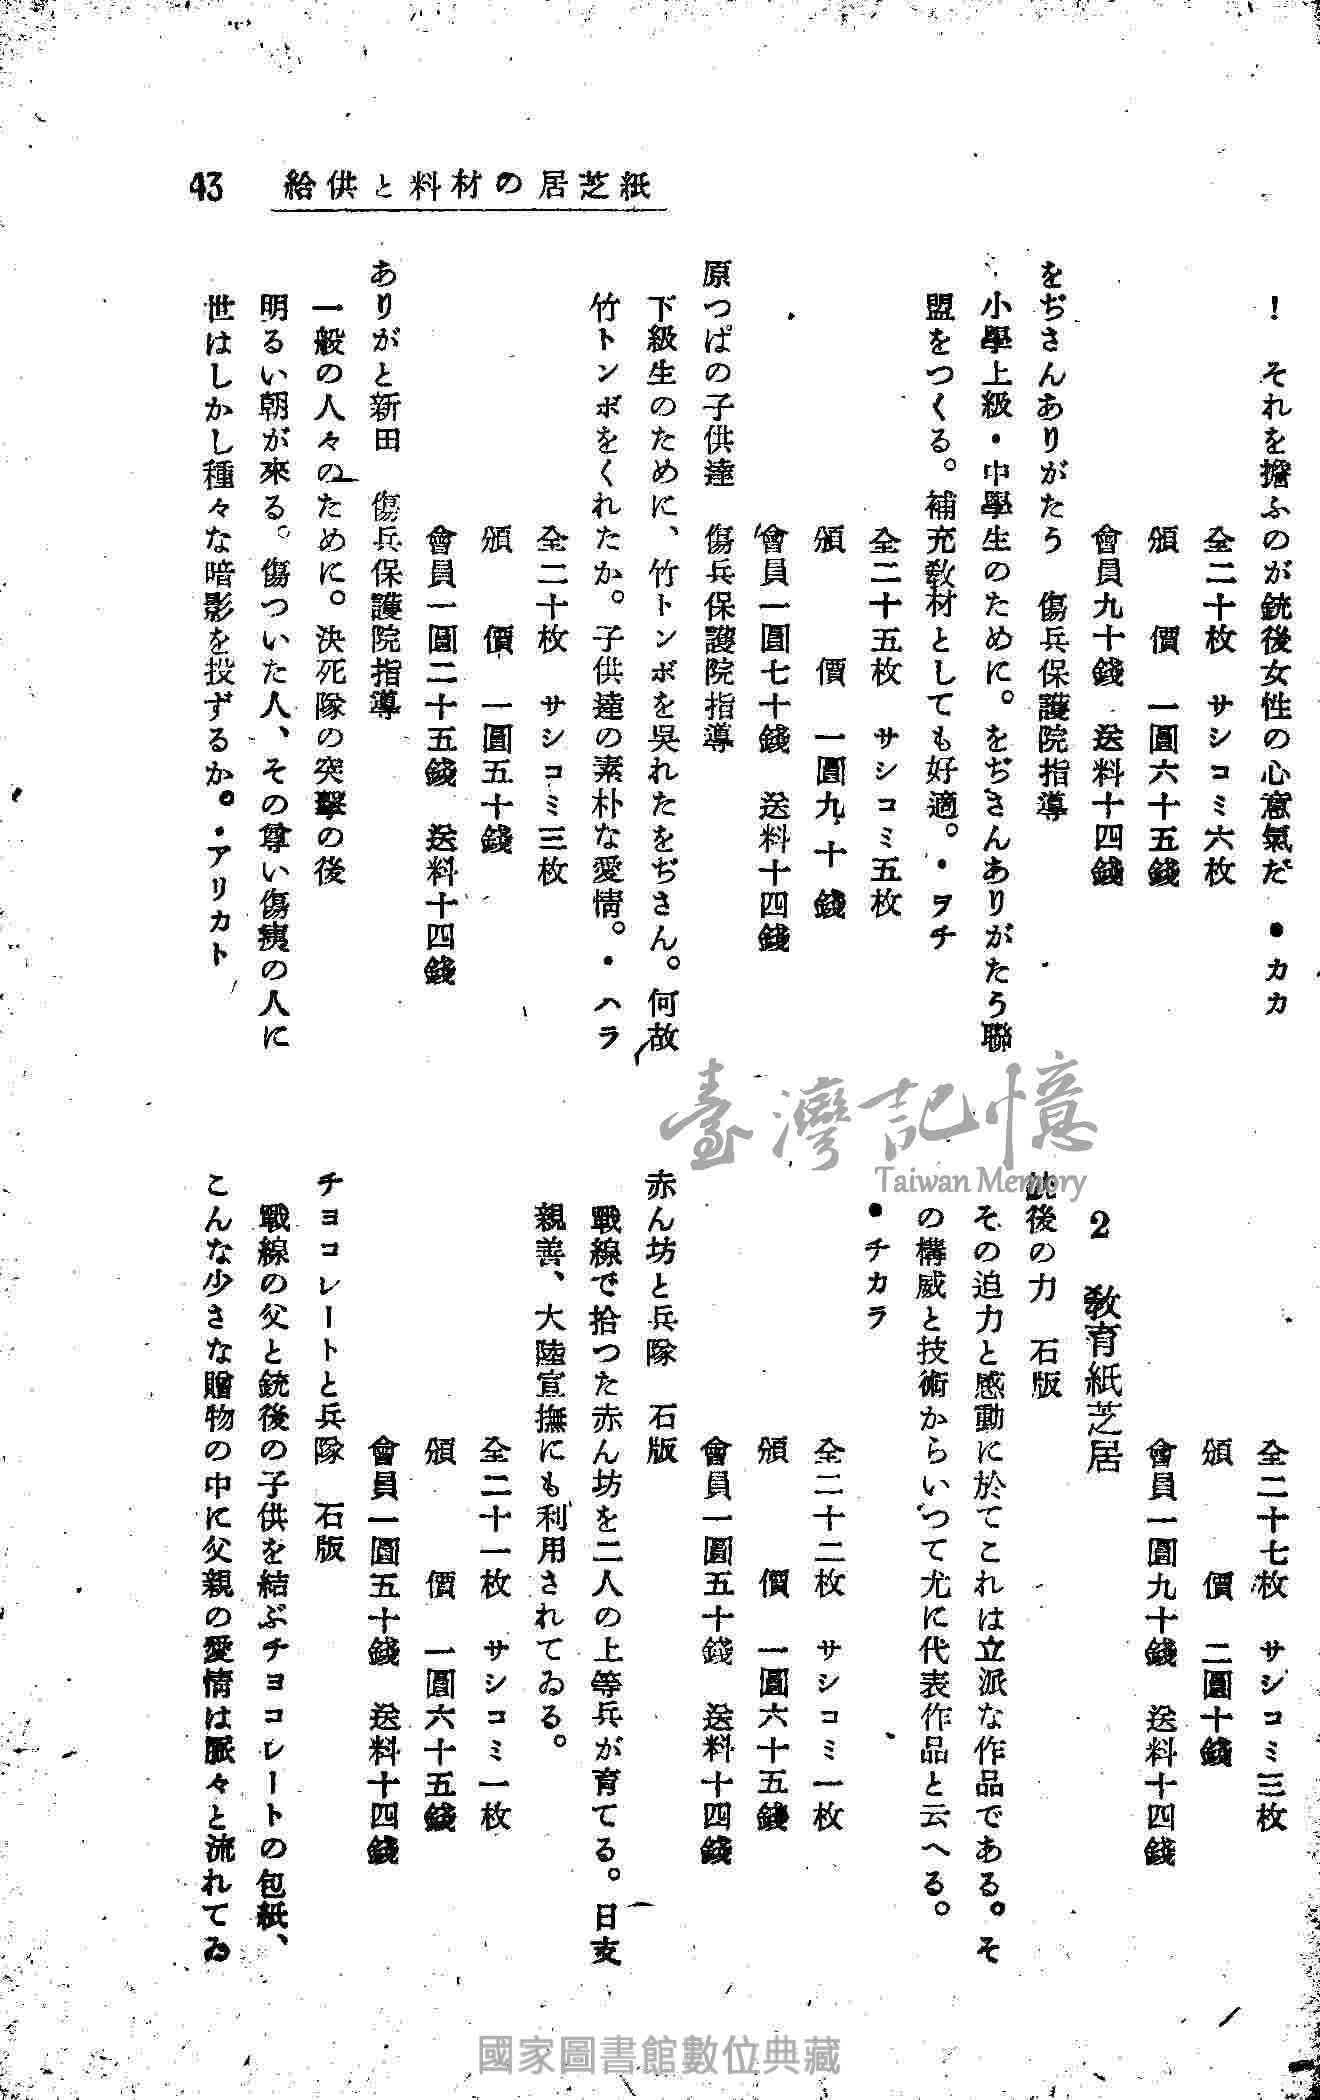 43 給供と料材の居芝紙
! それを擔ふのが銃後女性の心意氣だ ●カカ
全二十枚 サシコミ六枚
頒 價 一圓六十五錢
會員九十錢 送料十四錢
をぢさんありがたう 傷兵保護院指導
小學上級・中學生のために。をぢさんありがたう聯
盟をつくる。補充教材としても好適。・ヲチ
全二十五枚 サシコミ五枚
頒 價 一圓九十錢
會員一圓七十錢 送料十四錢
原つぱの子供達 傷兵保護院指導
下級生のために、竹トンボを吳れたをぢさん。何故
竹トンボをくれたか。子供達の素朴な愛情。・ハラ
全二十枚 サシコミ三枚
頒 價 一圓五十錢
會員一圓二十五錢 送料十四錢
ありがと新田 傷兵保護院指導
一般の人々のために。決死隊の突擊の後
明るい朝が來る。傷ついた人、その尊い傷痍の人に
世はしかし種々な暗影を投ずるか。・アリカト
全二十七枚 サシコミ三枚
頒 價 二圓十錢
會員一圓九十錢 送料十四錢
2 敎育紙芝居
銃後の力 石版
その迫力と感動に於てこれは立派な作品である。そ
の構威と技術からいつて尤に代表作品と云へる。
●チカラ
全二十二枚 サシコミ一枚
頒 價 一圓六十五錢
會員一圓五十錢 送料十四錢
赤ん坊と兵隊 石版
戰線で拾つた赤ん坊を二人の上等兵が育てる。日支
親善、大陸宣撫にも利用されてゐる。
全二十一枚 サシコミ一枚
頒 價 一圓六十五錢
會員一圓五十錢 送料十四錢
チヨコレートと兵隊 石版
戰線の父と銃後の子供を結ぶチヨコレートの包紙、
こんな少さな贈物の中に父親の愛情は脈々と流れてゐ
臺灣記憶
Taiwan Memory
國家圖書館數位典藏